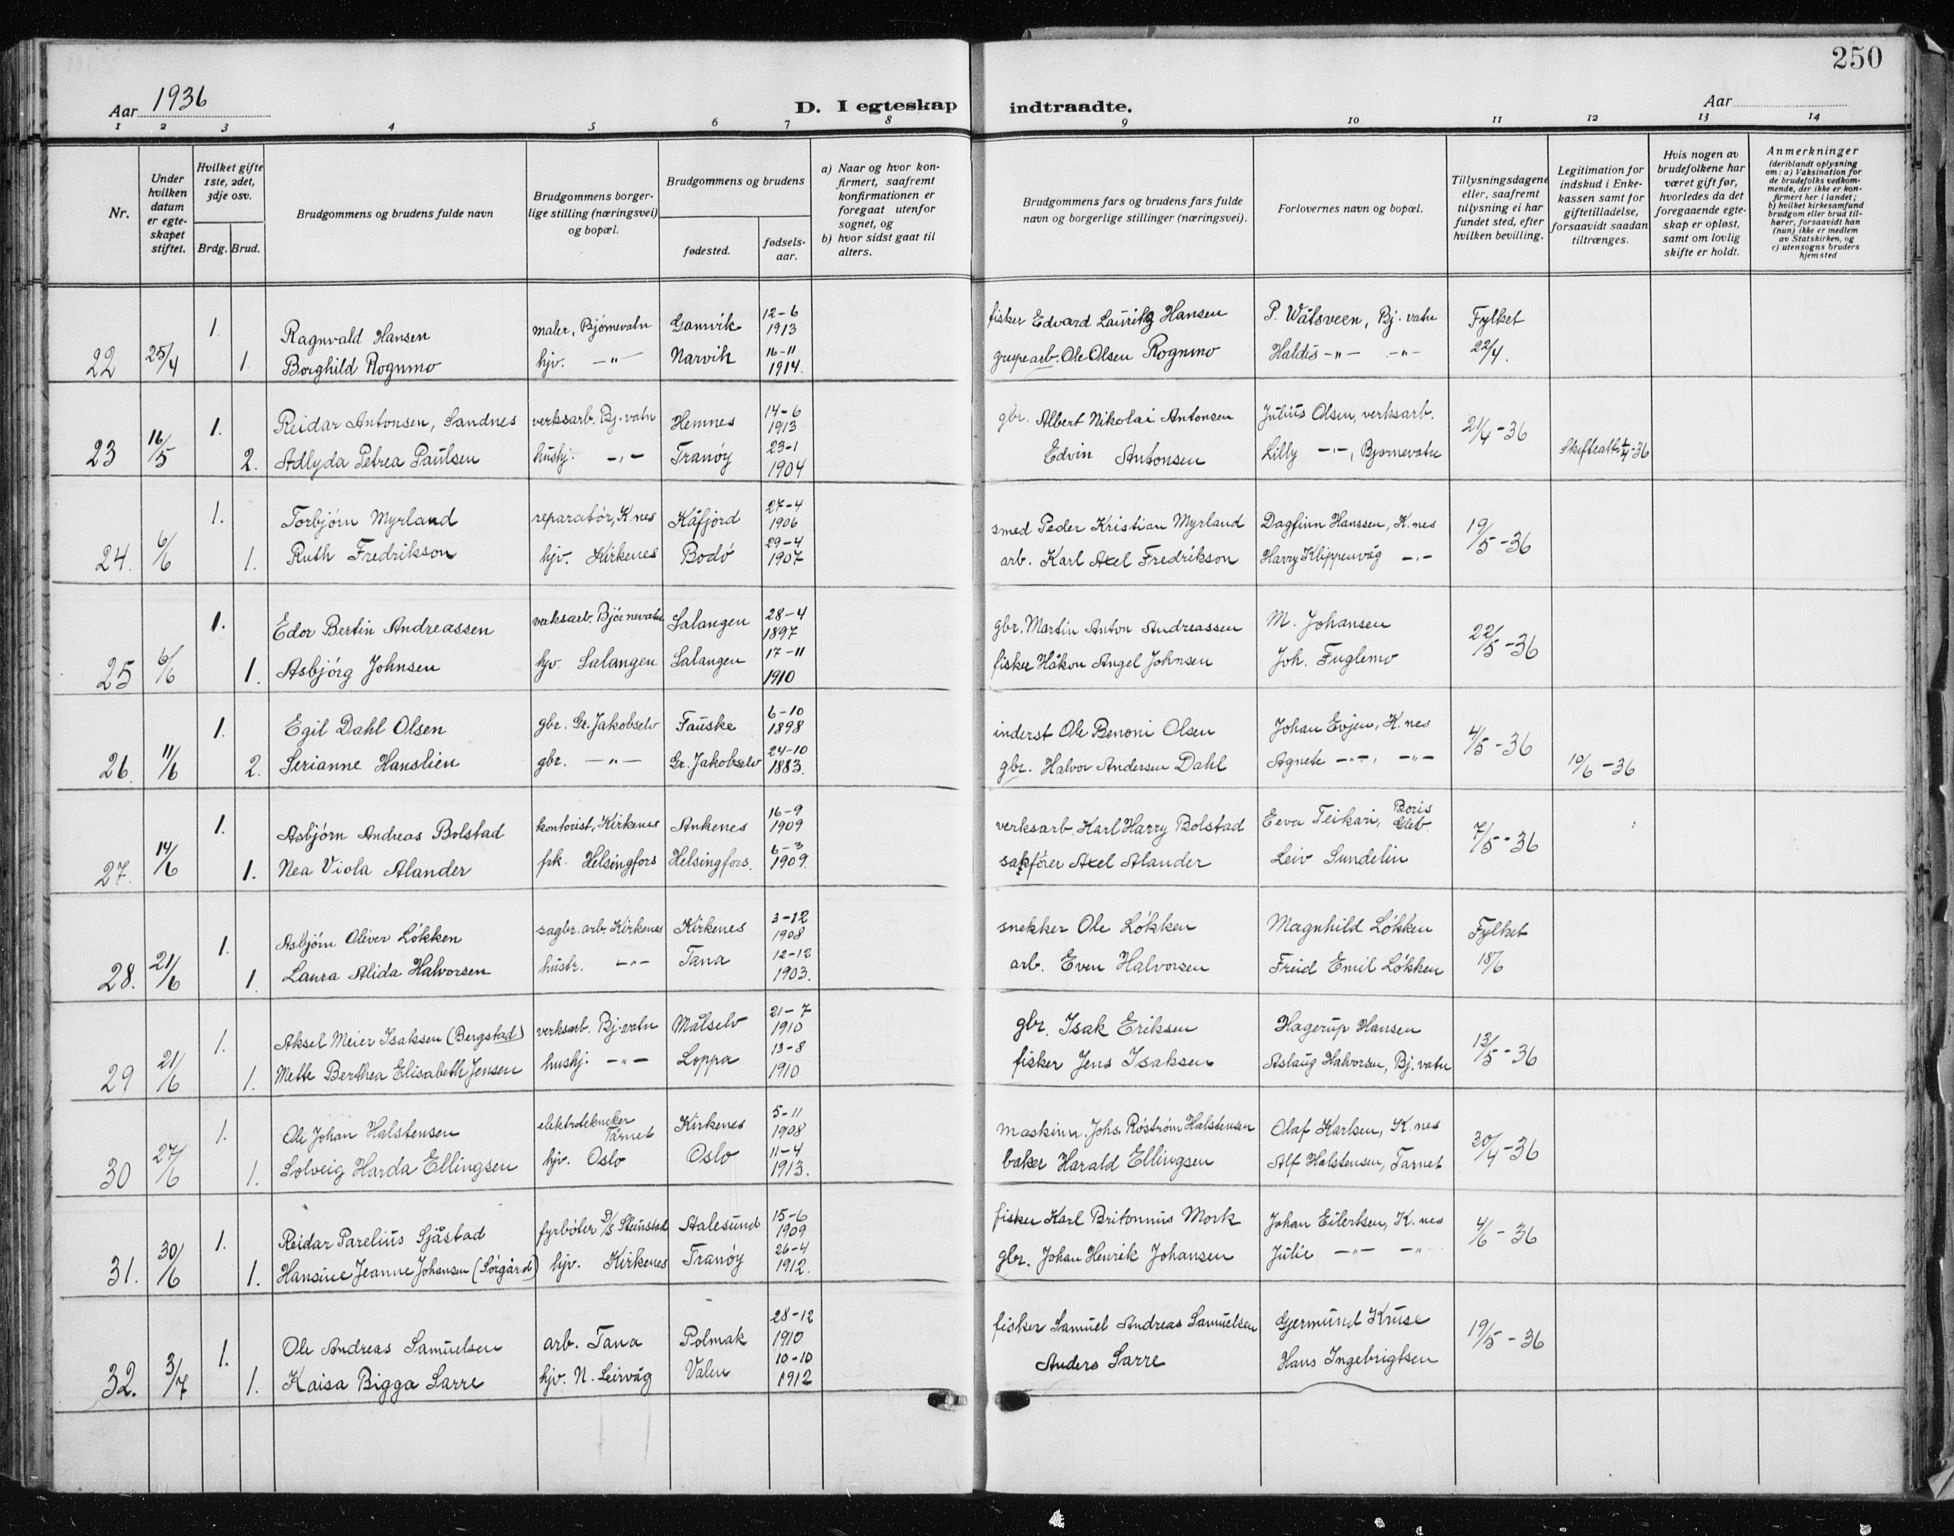 250
Aar 1936
D. I egteskap indtraadte.
Aar
1 2 3 4 5 6 7 8 9 10 11 12 13 14
Nr.
Under hvilken datum er egteskapet stiftet.
Hvilket gifte 1ste, 2det, 3dje osv.
Brdg. Brud.
Brudgommens og brudens fulde navn
Brudgommens borgerlige stilling (næringsvei) og bopæl.
Brudgommens og brudens
fødested.
fødselsaar.
a) Naar og hvor konfirmert, saafremt konfirmationen er foregaat utenfor sognet, og
b) hvor sidst gaat til alters.
Brudgommens fars og brudens fars fulde navn og borgerlige stillinger (næringsvei).
Forlovernes navn og bopæl.
Tillysningsdagene eller, saafremt tillysning ei har fundet sted, efter hvilken bevilling.
Legitimation for indskud i Enkekassen samt for giftetilladelse, forsaavidt saadan tiltrænges.
Hvis nogen av brudefolkene har været gift før, hvorledes da det foregaaende egteskap er opløst, samt om lovlig skifte er holdt.
Anmerkninger
(deriblandt oplysning om: a) Vaksination for de brudefolks vedkommende, der ikke er konfirmert her i landet; b) hvilket kirkesamfund brudgom eller brud tilhører, forsaavidt han (hun) ikke er medlem av Statskirken, og c) utensogns bruders hjemsted
22 25/4 1. Ragnvald Hansen maler, Bjørnevatn Gamvik 12-6 1913 fisker Edvard Lauritz Hansen P. Wålsveen, Bj. vatn Fylket
1. Borghild Rognmo hjv. -"- Narvik 16-11 1914. grubearb. Ole Olsen Rognmo Haldis -"- -"- 22/4.
23 16/5 1. Reidar Antonsen, Sandnes verksarb. Bj. vatn Hemnes 14-6 1913 gbr. Albert Nikolai Antonsen Julius Olsen, verksarb. 21/4-36
2. Adlyda Petrea Paulsen hushj. -"- Tranøy 23-1 1904 Edvin Antonsen Lilly -"-, Bjørnevatn
24. 6/6 1. Torbjørn Myrland reparatør, K.nes Kåfjord 27-4 1906 smed Peder Kristian Myrland Dagfinn Hanssen, K.nes 19/5-36
1. Ruth Fredrikson hjv. Kirkenes Bodø 29-4 1907 arb. Karl Axel Fredrikson Harry Klippenvåg -"-
25 6/6 1. Edor Bertin Andreassen verksarb. Bjørnevatn Salangen 28-4 1897 gbr. Martin Anton Andreassen M. Johansen 22/5-36
1. Asbjørg Johnsen hjv. Salangen Salangen 17-11 1910 fisker Håkon Angel Johnsen Joh. Fuglemo
26. 11/6 1. Egil Dahl Olsen gbr. Gr. Jakobselv Fauske 6-10 1898 inderst Ole Benoni Olsen Johan Evjen, K.nes 4/5-36
2. Serianne Hanslien gbr. -"- Gr. Jakobselv 24-10 1883. gbr. Halvor Andersen Dahl Agnete -"-, -"- 10/6-36
27. 14/6 1. Asbjørn Andreas Bolstad kontorist, Kirkenes Ankenes 16-9 1909 verksarb Karl Harry Bolstad Eeva Teikari, Boris Gleb. 7/5-36
1. Nea Viola Alander frk. Helsingfors Helsingfors. 6-3 1909. sakfører Axel Alander Leiv Sundelin
28. 21/6 1. Asbjørn Oliver Løkken sagbr. arb. Kirkenes Kirkenes 3-12 1908 snekker Ole Løkken Magnhild Løkken Fylket
1. Laura Alida Halvorsen hustr. -"- Tana 12-12 1903. arb. Even Halvorsen Freid Emil Løkken 18/6
29 21/6 1. Aksel Meier Isaksen (Bergstad) verksarb. Bj. vatn Målselv 21-7 1910 gbr. Isak Eriksen Hagerup Hansen 13/5-36
1. Mette Berthea Elisabeth Jensen hushj. -"- Loppa 13-8 1910 fisker Jens Isaksen Aslaug Halvorsen, Bj. vatn
30 27/6 1. Ole Johan Halstensen elektrotekniker Tårnet Kirkenes 5-11 1908 maskinm. Johs. Røstrøm Halstensen Olaf Karlsen, K.nes 30/4-36
1. Solveig Harda Ellingsen hjv. Oslo Oslo 11-4 1913. baker Harald Ellingsen Alf Halstensen, Tarnet
31. 30/6 1. Reidar Parelius Sjåstad fyrbøter D/S Steinstad Aalesund 15-6 1909 fisker Karl Britonnus Mork Johan Eilertsen, K.nes 4/6-36
1. Hansine Jeanne Johansen (Sørgård) hjv. Kirkenes Tranøy 26-4 1912. gbr. Johan Henrik Johansen Julie -"- -"-
32. 3/7 1. Ole Andreas Samuelsen arb. Tana Polmak 28-12 1910 fisker Samuel Andreas Samuelsen Gjermund Kruse 19/5-36
1. Kaisa Bigga Sarre hjv. N. Leirvåg Valen 10-10 1912 Anders Sarre Hans Ingebrigtsen